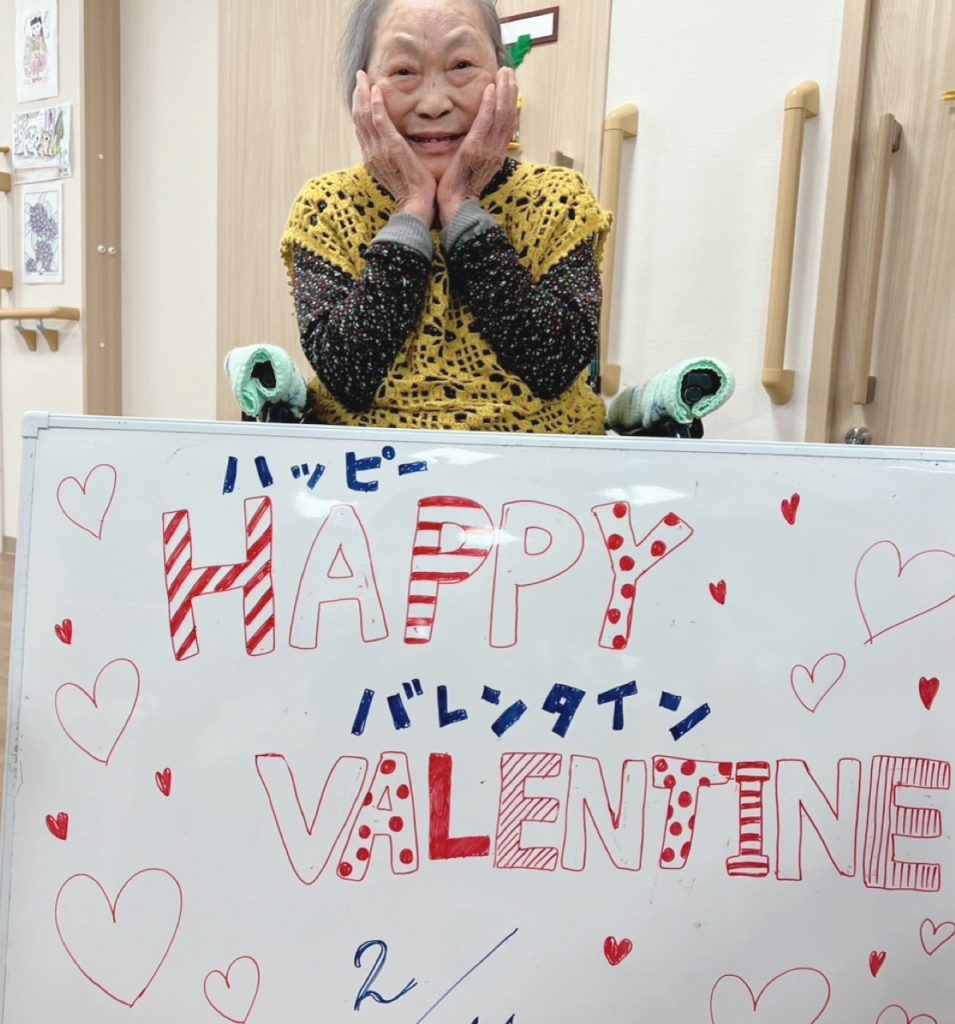 ハッピー
HAPPY
バレンタイン
VALENTINE
2/